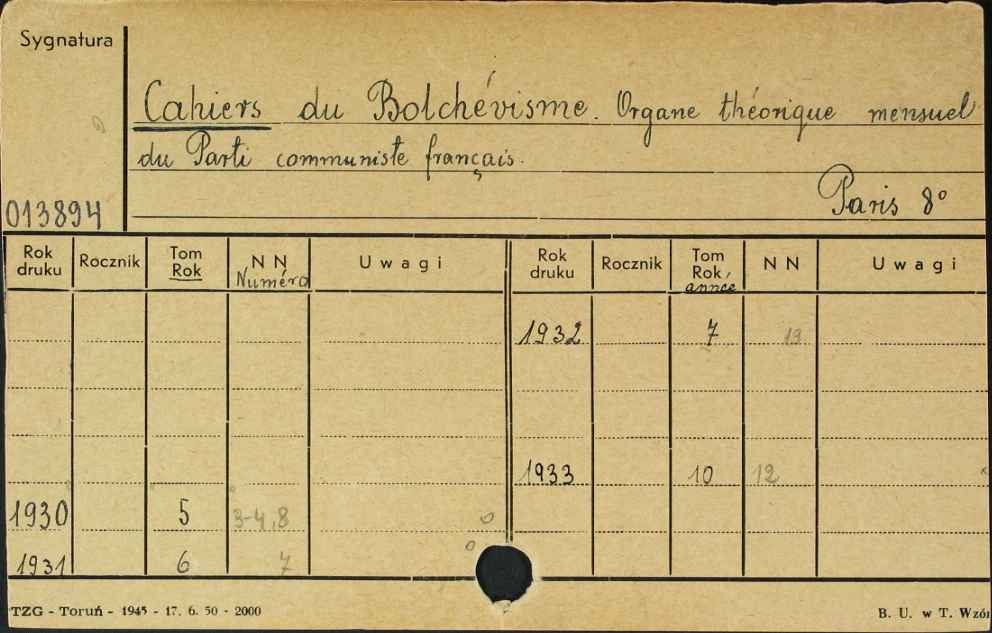 Sygnatura
Cahiers du Bolchévisme. Organe théorique mensuel
du Parti communiste français.
013894
Paris 8°
Rok druku Rocznik Tom Rok N N Numéro Uwagi Rok druku Rocznik Tom Rok année N N Uwagi
1932 7 19
1933 10 12
1930 5 3-4,8
1931 6 7
TZG - Toruń - 1945 - 17. 6. 50 - 2000
B. U. w T. Wzór